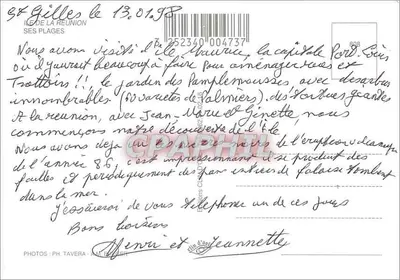 St Gilles le 13.01.98
ÎLE DE LA RÉUNION
SES PLAGES
3 252340 004737
Nous avons visité l'île Maurice, la capitale Port-Louis
où il y aurait beaucoup à faire pour aménager rues et
Trottoirs!!! le jardin des Pamplemousses, avec des arbres
innombrables (60 variétés de Palmiers), des tortues géantes
A la réunion, avec Jean-Marie et Ginette nous
commençons notre découverte de l'île
Nous avons déjà vu de l'éruption volcanique
de l'année 86, c'est impressionnant il se produit des
failles et périodiquement des pans entiers de falaise tombent
dans la mer.
J'essaierai de vous téléphoner un de ces jours
Bons baisers
Henri et Jeannette
CPAPHIL
PHOTOS : PH. TAVERA